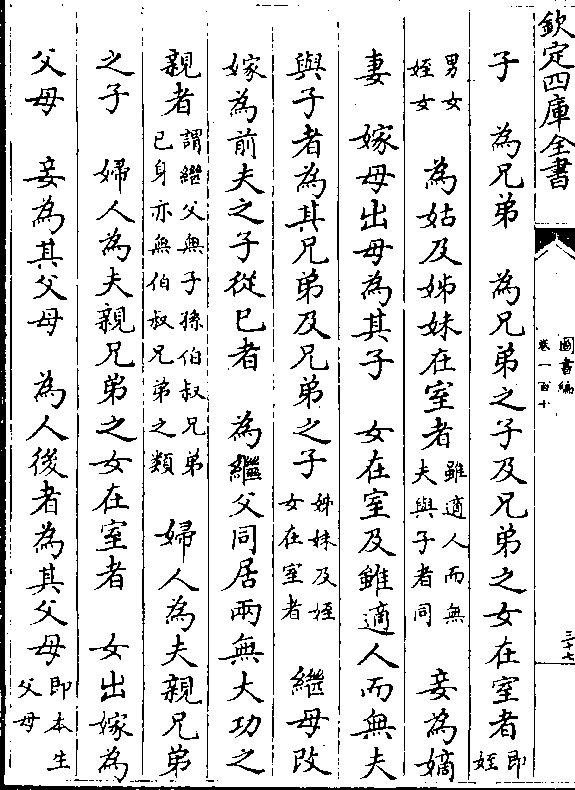 欽定四庫全書
圖書編
卷一百十
三十七
子　為兄弟　為兄弟之子及兄弟之女在室者即姪
男女姪女　為姑及姊妹在室者雖適人而無夫與子者同　妾為嫡
妻　嫁母出母為其子　女在室及雖適人而無夫
與子者為其兄弟及兄弟之子姊妹及姪女在室者　繼母改
嫁為前夫之子從已者　為繼父同居兩無大功之
親者謂繼父無子孫伯叔兄弟已身亦無伯叔兄弟之類　婦人為夫親兄弟
之子　婦人為夫親兄弟之女在室者　女出嫁為
父母　妾為其父母　為人後者為其父母即本生父母